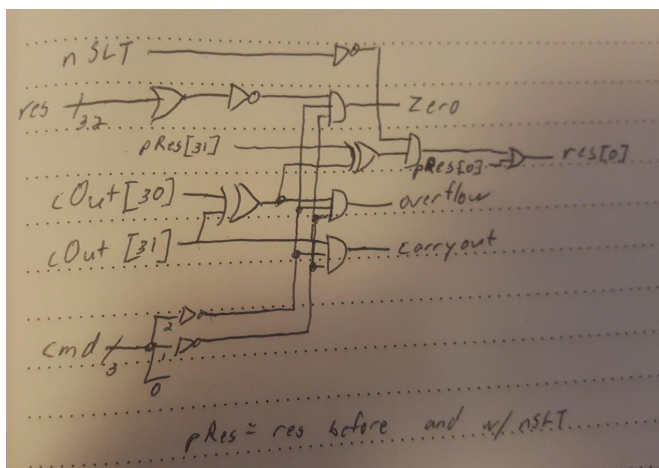 nSLT
res 32 Zero
pRes[31]
pRes[0] res[0]
cOut[30] overflow
cOut[31] carryout
2
cmd 3 1
0
pRes = res before and w/ nSLT